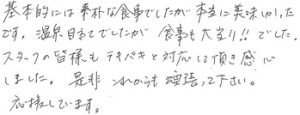 基本的には素朴な食事でしたが本当に美味しかった
です。温泉目あてでしたが 食事も大当り!! でした。
スタッフの皆様もテキパキと対応して頂き感心
しました。是非これからも頑張って下さい。
応援しています。